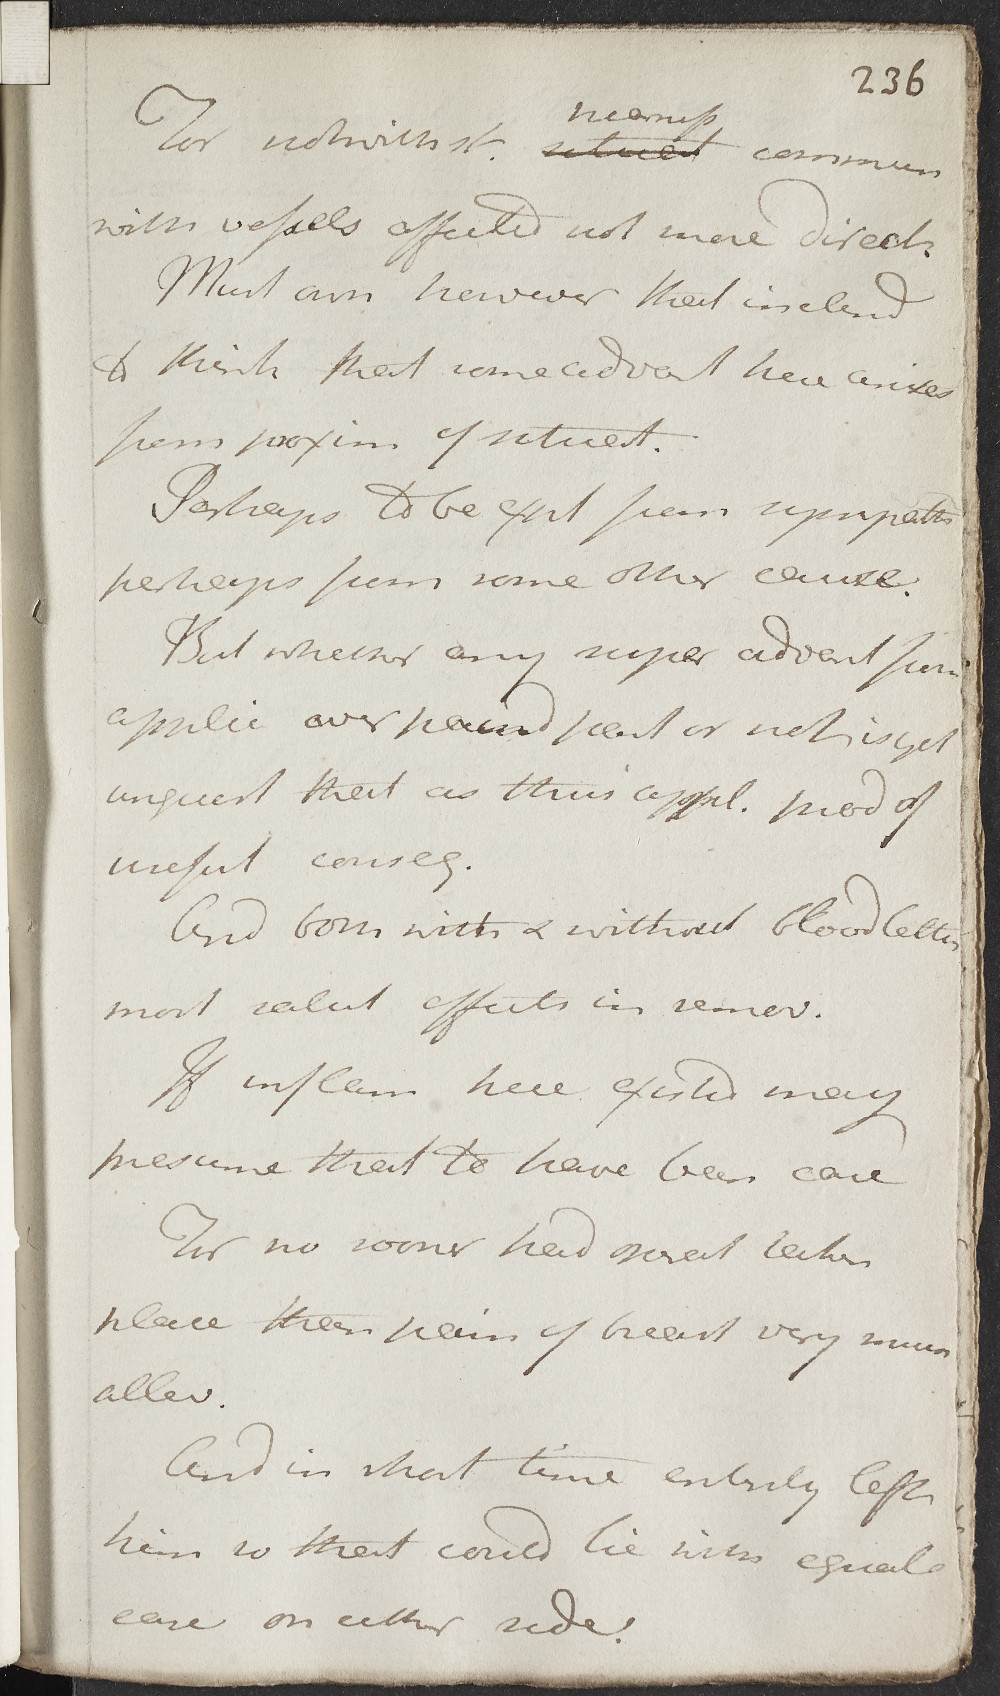 236
nearness
For notwithst. situat commun
with vessels affected not more direct.
Must own however that inclind
to think that some advant here arises
from proxim of situat.
Perhaps to be expl from sympath
perhaps from some other cause.
But whether any super advant from
applic over paind part or not is yet
unquest that as this appl. prod of
useful conseq.
And both with & without bloodletting
most salut effects in remov.
If inflam here existed may
presume that to have been case
For no sooner had operat taken
place than pain of breast very much
allev.
And in short time entirely left
him so that could lie with equal
ease on either side.